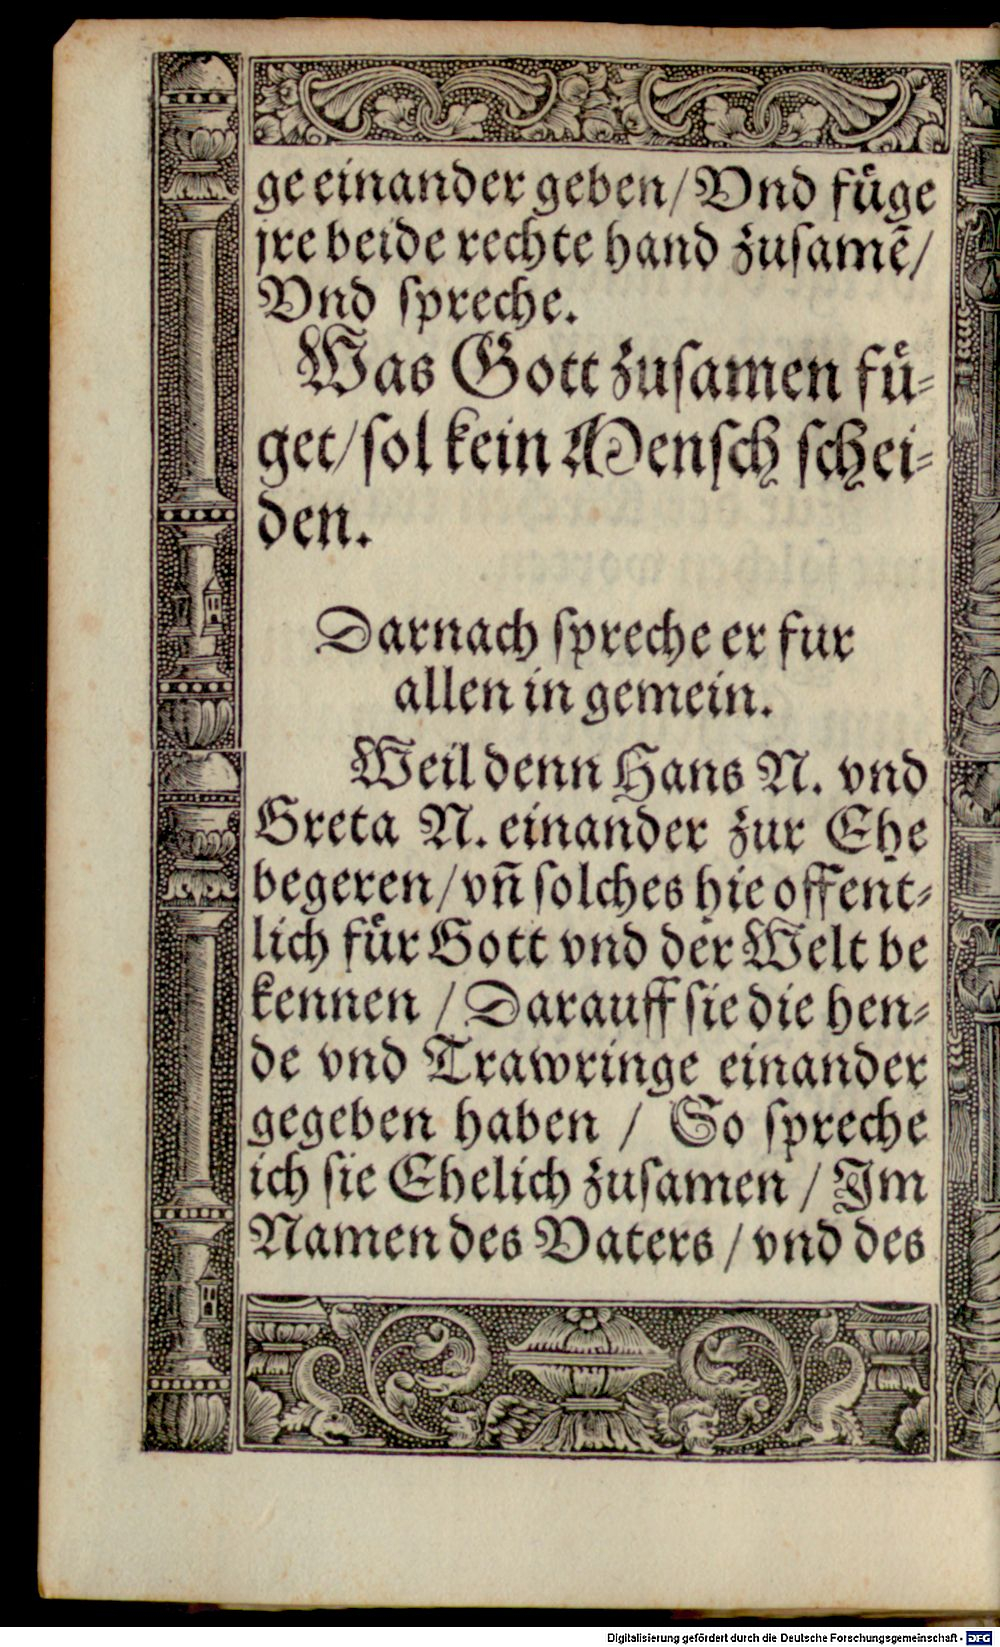 ge einander geben/ Vnd fuͤge
jre beide rechte hand zusamẽ/
Vnd spreche.
Was Gott zusamen fuͤ-
get/ sol kein Mensch schei-
den.
Darnach spreche er fur
allen in gemein.
Weil denn Hans N. vnd
Greta N. einander zur Ehe
begeren/ vñ solches hie offent-
lich fuͤr Gott vnd der Welt be
kennen / Darauff sie die hen-
de vnd Trawringe einander
gegeben haben / So spreche
ich sie Ehelich zusamen / Im
Namen des Vaters / vnd des
Digitalisierung gefördert durch die Deutsche Forschungsgemeinschaft - DFG